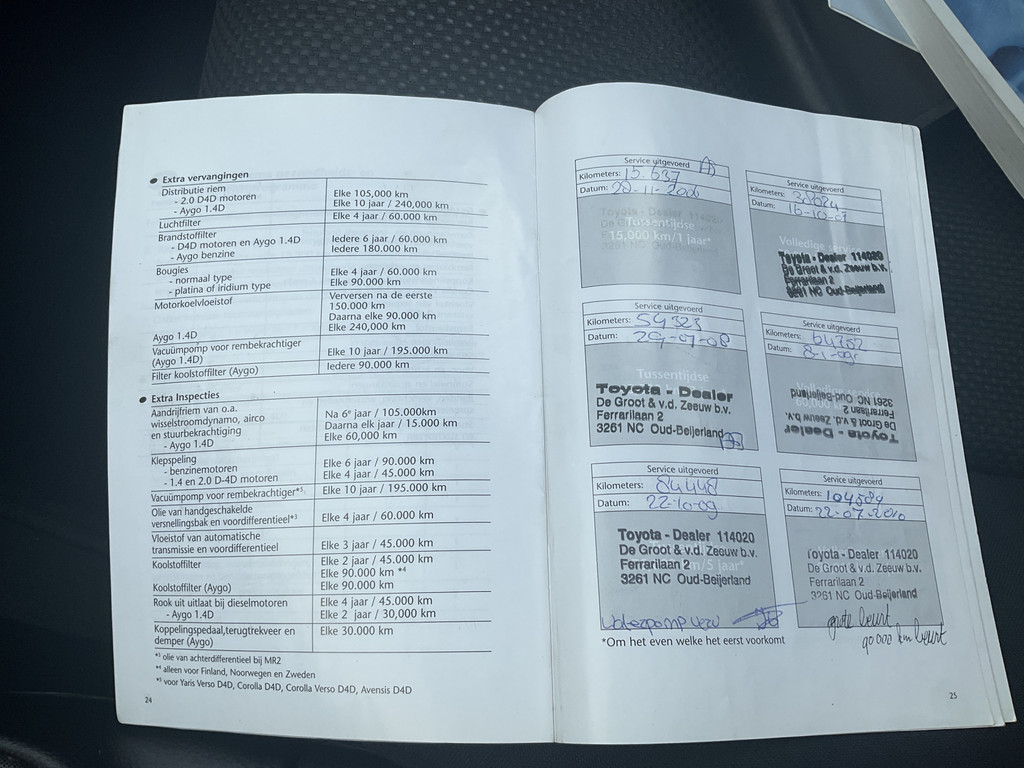 ● Extra vervangingen
Distributie riem
- 2.0 D4D motoren Elke 105,000 km
- Aygo 1.4D Elke 10 jaar / 240,000 km
Luchtfilter Elke 4 jaar / 60.000 km
Brandstoffilter
- D4D motoren en Aygo 1.4D Iedere 6 jaar / 60.000 km
- Aygo benzine Iedere 180.000 km
Bougies
- normaal type Elke 4 jaar / 60.000 km
- platina of iridium type Elke 90.000 km
Motorkoelvloeistof Verversen na de eerste
150.000 km
Daarna elke 90.000 km
Aygo 1.4D Elke 240,000 km
Vacuümpomp voor rembekrachtiger Elke 10 jaar / 195.000 km
(Aygo 1.4D)
Filter koolstoffilter (Aygo) Iedere 90.000 km
● Extra Inspecties
Aandrijfriem van o.a. Na 6e jaar / 105.000km
wisselstroomdynamo, airco Daarna elk jaar / 15.000 km
en stuurbekrachtiging
- Aygo 1.4D Elke 60,000 km
Klepspeling
- benzinemotoren Elke 6 jaar / 90.000 km
- 1.4 en 2.0 D-4D motoren Elke 4 jaar / 45.000 km
Vacuümpomp voor rembekrachtiger*5 Elke 10 jaar / 195.000 km
Olie van handgeschakelde
versnellingsbak en voordifferentieel*3 Elke 4 jaar / 60.000 km
Vloeistof van automatische
transmissie en voordifferentieel Elke 3 jaar / 45.000 km
Koolstoffilter Elke 2 jaar / 45.000 km
Elke 90.000 km *4
Koolstoffilter (Aygo) Elke 90.000 km
Rook uit uitlaat bij dieselmotoren Elke 4 jaar / 45.000 km
- Aygo 1.4D Elke 2 jaar / 30,000 km
Koppelingspedaal,terugtrekveer en Elke 30.000 km
demper (Aygo)
*3 olie van achterdifferentieel bij MR2
*4 alleen voor Finland, Noorwegen en Zweden
*5 voor Yaris Verso D4D, Corolla D4D, Corolla Verso D4D, Avensis D4D
24
Service uitgevoerd
Kilometers: 15.637
Datum: 28-11-2006
Toyota - Dealer 114020
Tussentijdse
15,000 km/1 jaar*
3261 NC Oud-Beijerland
Service uitgevoerd
Kilometers:
Datum: 16-10-07
Volledige service
Toyota - Dealer 114020
De Groot & v.d. Zeeuw b.v.
Ferrarilaan 2
3261 NC Oud-Beijerland
Service uitgevoerd
Kilometers: 54323
Datum: 29-07-08
Tussentijdse
Toyota - Dealer
De Groot & v.d. Zeeuw b.v.
Ferrarilaan 2
3261 NC Oud-Beijerland
Service uitgevoerd
Kilometers: 64352
Datum: 8-1-09
Toyota - Dealer
De Groot & v.d. Zeeuw b.v.
Ferrarilaan 2
3261 NC Oud-Beijerland
Service uitgevoerd
Kilometers: 84448
Datum: 22-10-09
Toyota - Dealer 114020
De Groot & v.d. Zeeuw b.v.
Ferrarilaan 2
3261 NC Oud-Beijerland
Service uitgevoerd
Kilometers: 104584
Datum: 22-07-2010
Toyota - Dealer 114020
De Groot & v.d. Zeeuw b.v.
Ferrarilaan 2
3261 NC Oud-Beijerland
grote beurt
90 000 km beurt
*Om het even welke het eerst voorkomt
25